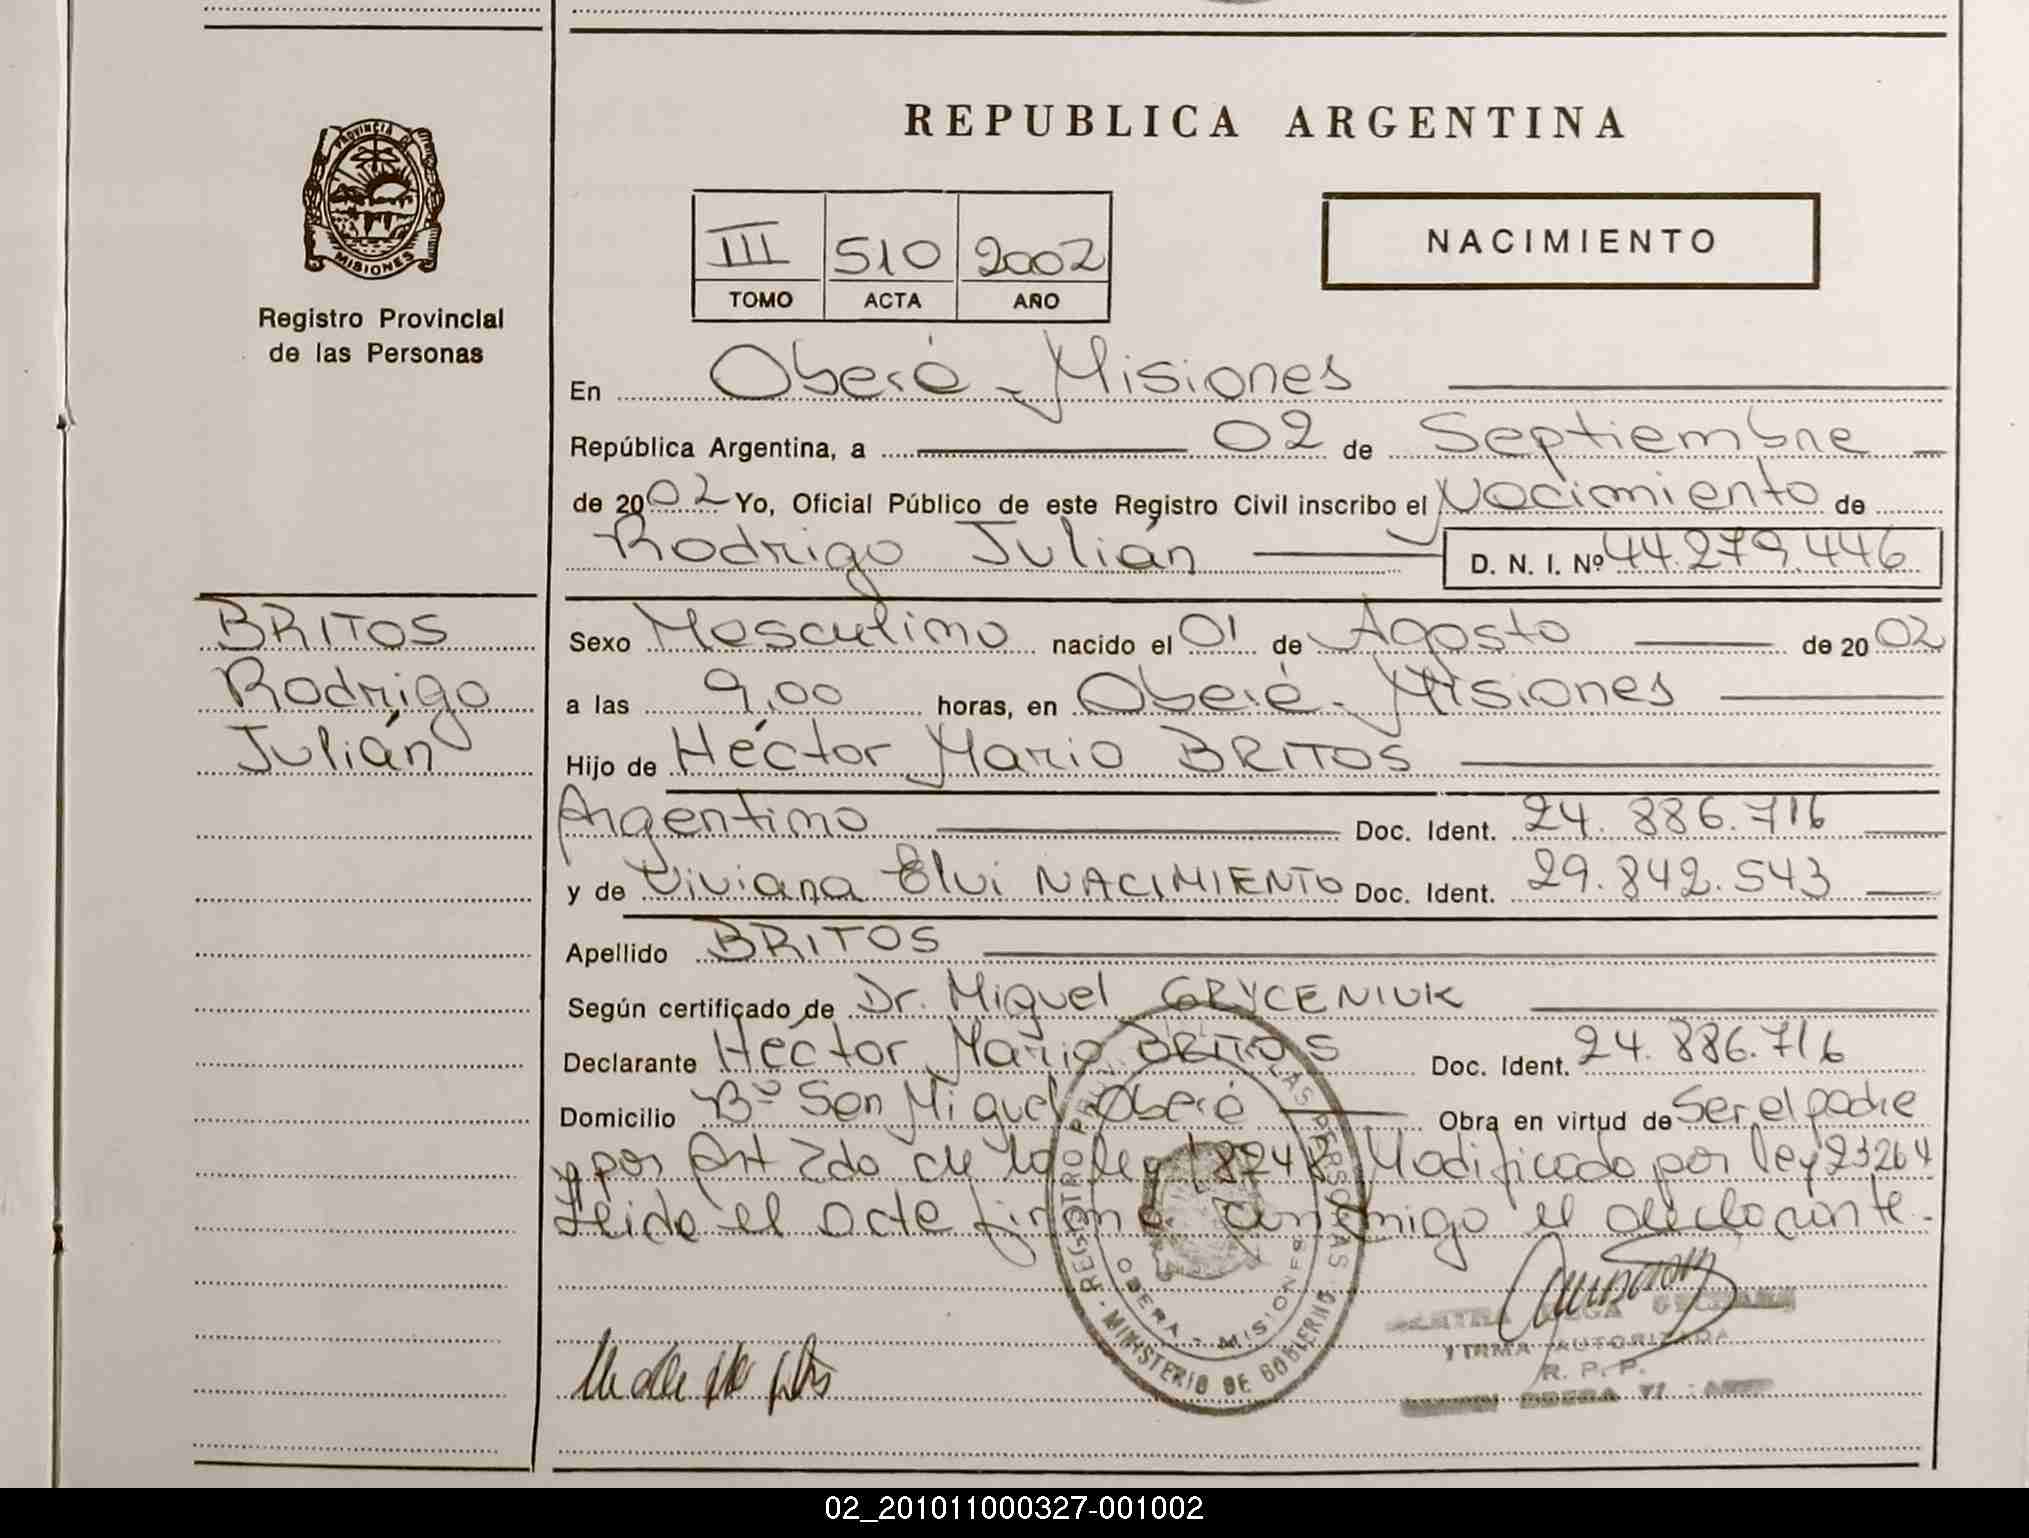 REPUBLICA ARGENTINA
PROVINCIA DE MISIONES
Registro Provincial
de las Personas
III 510 2002
TOMO ACTA AÑO
NACIMIENTO
En Oberá - Misiones
República Argentina, a 02 de Septiembre
de 2002 Yo, Oficial Público de este Registro Civil inscribo el Nacimiento de
Rodrigo Julián D. N. I. Nº 44.279.446
BRITOS
Rodrigo
Julián
Sexo Masculino nacido el 01 de Agosto de 2002
a las 9,00 horas, en Oberá - Misiones
Hijo de Héctor Mario BRITOS
Argentino Doc. Ident. 24.886.716
y de Viviana Elvi NACIMIENTO Doc. Ident. 29.842.543
Apellido BRITOS
Según certificado de Dr. Miguel GRYCENIUK
Declarante Héctor Mario BRITOS Doc. Ident. 24.886.716
Domicilio Bº San Miguel Oberá Obra en virtud de Ser el padre
y por Art 2do de la ley 18248 Modificado por ley 23264
Leida el acta firma conmigo el declarante.
REGISTRO PROV. DE LAS PERSONAS
MINISTERIO DE GOBIERNO
OBERA - MISIONES
FIRMA AUTORIZADA
R. P. P.
02_201011000327-001002